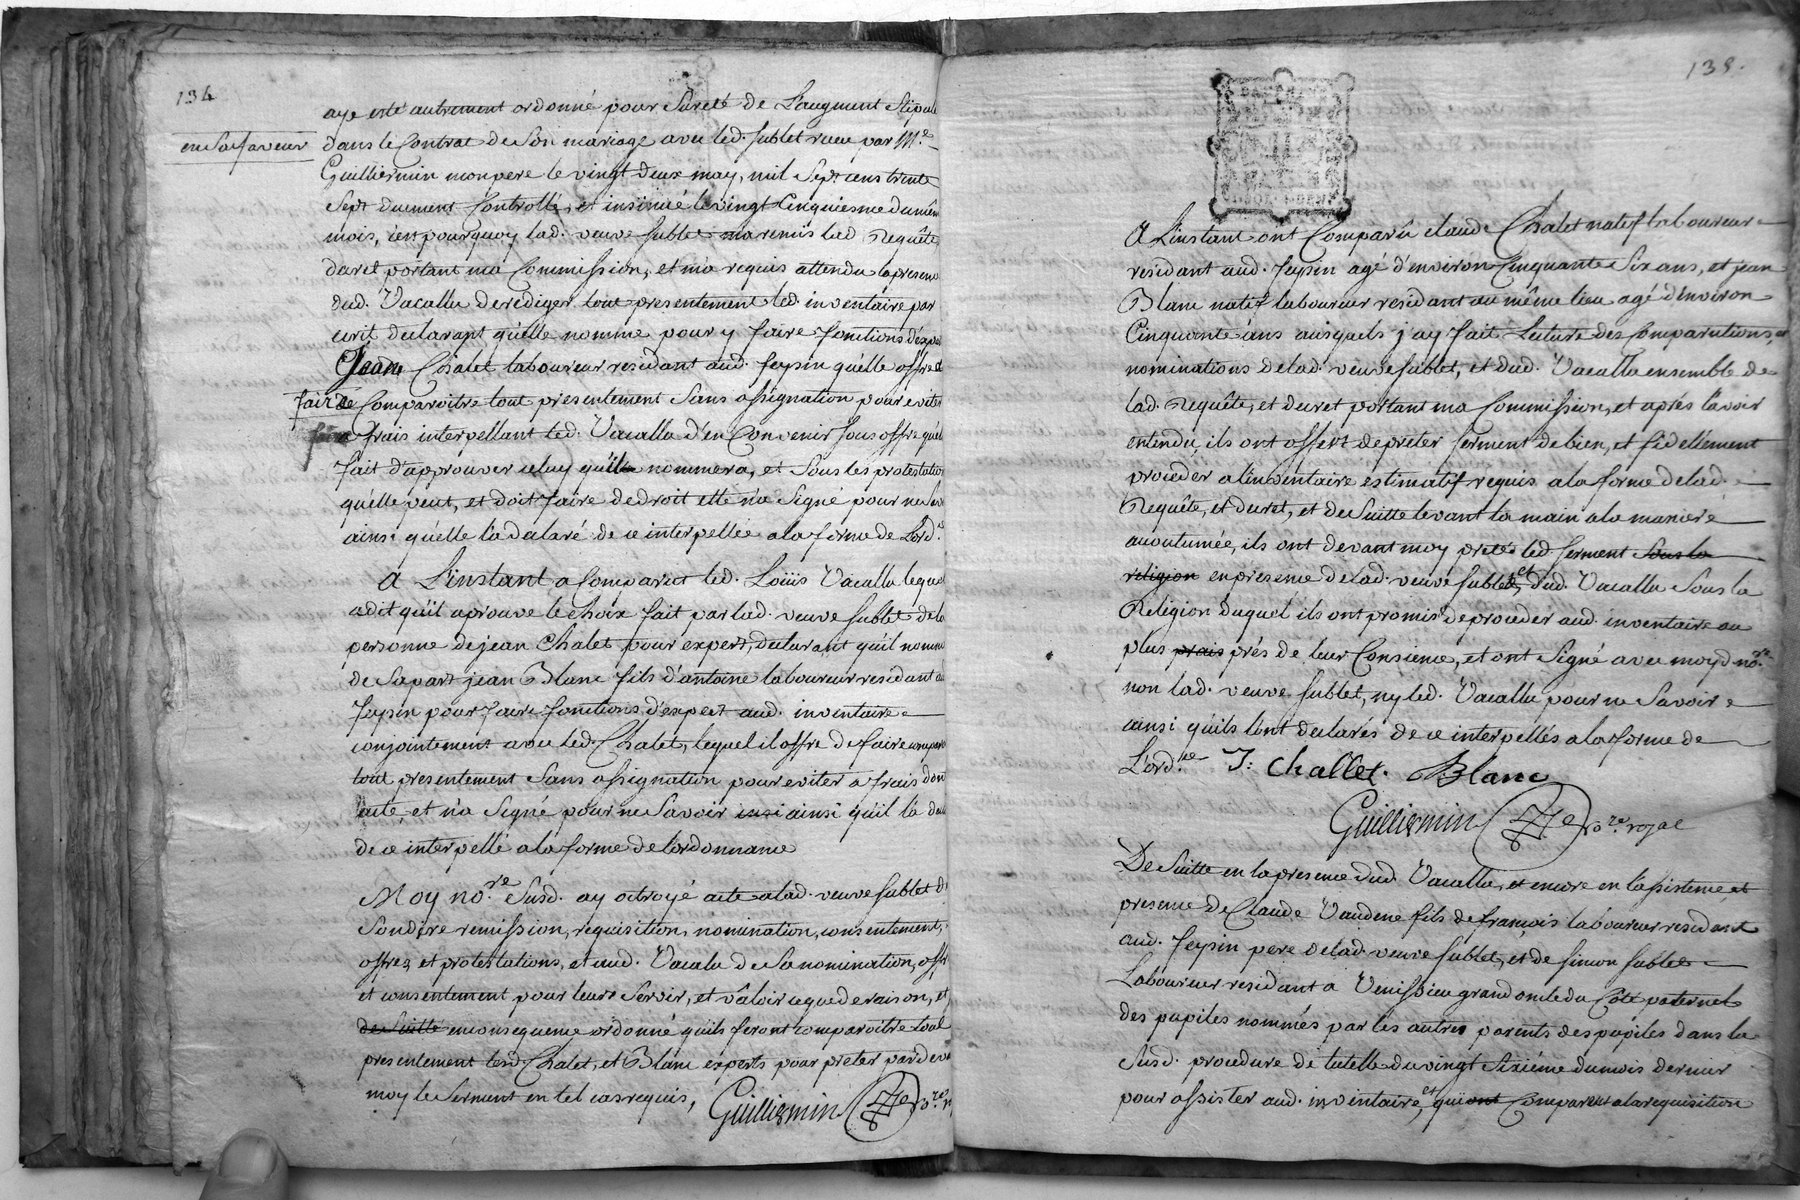 134
aye esté autrement ordonné pour Sûreté de L'augment Stipulé
en Sa faveur
dans le Contrat de Son mariage avec led. Sublet receu par Me.
Guilliermin mon pere le vingt deux may, mil Sept cens trente
Sept duement Controllé, et insinué le vingt Cinquiesme du même
mois, c'est pourquoy lad. veuve Sublet m'a remis led Requête
decret portant ma Commission, et m'a requis attendu la presence
dud. Vacalla de rediger tout presentement led. inventaire par
ecrit declarant qu'elle nomme pour y faire fonctions d'expert
Jean Chalet laboureur residant aud. feysin qu'elle offre de
faire Comparoître tout presentement Sans assignation pour eviter
a frais interpellant led. Vacalla d'en Convenir Sous offre qu'elle
fait d'approuver celuy qu'il nommera, et Sous les protestations
qu'elle peut, et doit faire de droit elle n'a Signé pour ne Savoir
ainsi qu'elle l'a declaré de ce interpellée a la forme de L'ord.ce
A L'instant a Comparut led. Loüis Vacalla lequel
a dit qu'il aprouve le choix fait par lad. veuve Sublet de la
personne de jean Chalet pour expert, declarant qu'il nomme
de Sa part jean Blanc fils d'antoine laboureur residant a
feysin pour faire fonctions d'expert aud. inventaire
conjointement avec led. Chalet, lequel il offre de faire comparoir
tout presentement Sans assignation pour eviter a frais dont
acte, et n'a Signé pour ne Savoir insi ainsi qu'il l'a declaré
de ce interpellé a la forme de lordonnance
Moy no.re Susd. ay octroyé acte a lad. veuve Sublet de
Son dire remission, requisition, nomination, consentement,
offres, et protestations, et aud. Vacala de Sa nomination, offre
et consentement pour leurs Servir, et valoir ce que de raison, et
de Suitte en consequence ordonné qu'ils feront comparoître tout
presentement lesd. Chalet, et Blanc experts pour preter pardevant
moy le Serment en tel cas requis,
Guilliermin no.re
138.
A L'instant ont Comparû claude Chalet natif laboureur
residant aud. feysin agé d'environ Cinquante Six ans, et jean
Blanc natif laboureur residant au même lieu agé d'environ
Cinquante ans ausquels j'ay fait Lecture des Comparutions, et
nominations de lad. veuve Sublet, et dud. Vacalla ensemble de
lad. Requête, et decret portant ma Commission, et aprés l'avoir
entendu, ils ont offert de preter Serment de bien, et fidellement
proceder a l'inventaire estimatif requis a la forme de lad.
Requête, et decret, et de Suitte levant la main a la maniere
accoutumée, ils ont devant moy preté led Serment Sous la
religion en presence de lad. veuve Sublet, et dud. Vacalla Sous la
Religion duquel ils ont promis de proceder aud. inventaire au
plus prais prés de leur Consience, et ont Signé avec moyd no.re
non lad. veuve Sublet, ny led. Vacalla pour ne Savoir
ainsi qu'ils l'ont declarés de ce interpellés a la forme de
L'ord.ce J: challet. Blanc
Guilliermin no.re royal
De Suitte en la presence dud. Vacalla, et encore en l'assistence et
presence de Claude Vaudene fils de françois laboureur residant
aud. feysin pere de lad. veuve Sublet, et de Simon Sublet
Laboureur residant a Venissieu grand oncle du Côté paternel
des pupiles nommés par les autres parents des pupiles dans la
Susd. procedure de tutelle du vingt Sixiéme du mois dernier
pour assister aud. inventaire, et qui ont Comparut a la requisition